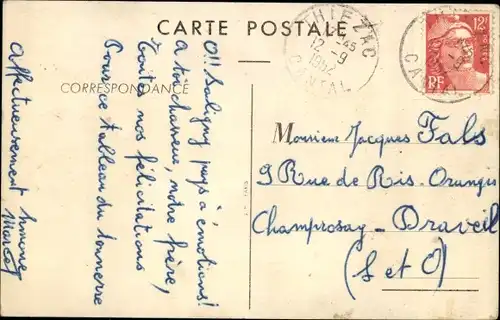 CARTE POSTALE
THIEZAC
12 -9
1952
CANTAL
12F
RF
CORRESPONDANCE
O!! Saligny pays à émotions!
A toi chasseur, notre frère,
Toutes nos félicitations
Pour ce tableau du tonnerre
Affectueusement Simone
Marcel
Monsieur Jacques Fals
9 Rue de Ris. Orangis
Champrosay - Draveil
(S et O)